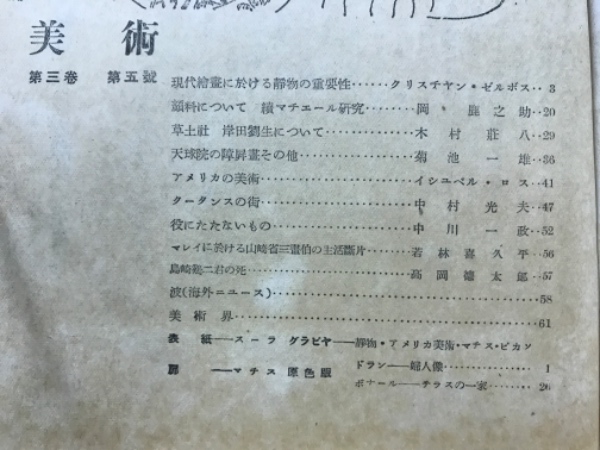 美術
第三巻 第五號
現代繪畫に於ける靜物の重要性……クリステヤン・ゼルボス‥3
顔料について 續マチエール研究………岡 鹿之助‥20
草土社 岸田劉生について……………木村莊八‥29
天球院の障屏畫その他………………菊池一雄‥36
アメリカの美術………………イシユベル・ロス‥41
タータンスの街………………中村光夫‥47
役にたたないもの………………中川一政‥52
マレイに於ける山崎省三畫伯の生活斷片………若林喜久平‥56
島崎鷄二君の死………………高岡德太郎‥57
波(海外ニユース)………………58
美術界………………61
表紙──スーラ グラビヤ──靜物・アメリカ美術・マチス・ピカソ
扉──マチス 原色版 ドラン──婦人像………………1
ボナール──テラスの一家………26